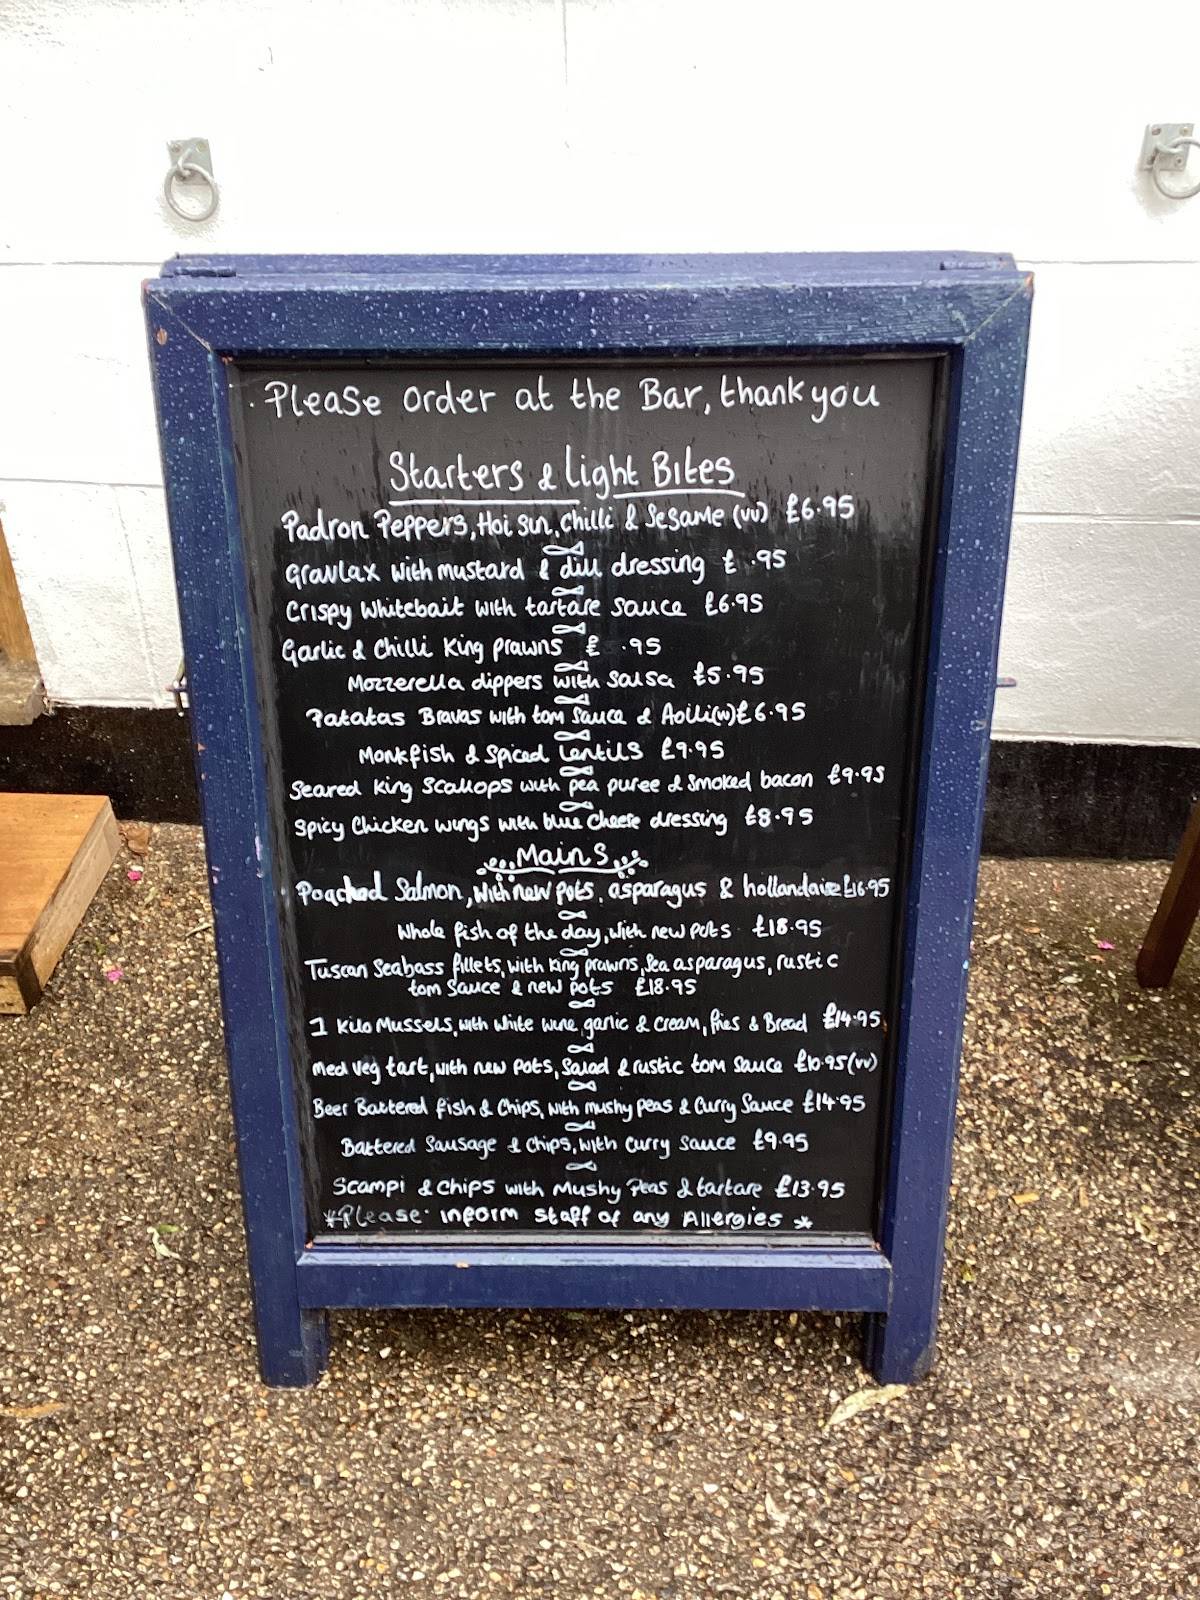 Please order at the Bar, thank you
Starters & Light Bites
Padron Peppers, Hoi Sin, Chilli & Sesame (vv) £6.95
Gravlax with mustard & dill dressing £ .95
Crispy Whitebait with tartare sauce £6.95
Garlic & Chilli King prawns £ .95
Mozzerella dippers with salsa £5.95
Patatas Bravas with tom sauce & Aoilli(vv) £6.95
Monkfish & Spiced Lentils £9.95
Seared King Scallops with pea puree & smoked bacon £9.95
Spicy Chicken wings with blue cheese dressing £8.95
Mains
Poached Salmon, with new pots, asparagus & hollandaise £16.95
Whole fish of the day, with new pots £18.95
Tuscan Seabass fillets, with King prawns, Sea asparagus, rustic
tom sauce & new pots £18.95
1 Kilo Mussels, with white wine, garlic & cream, fries & Bread £14.95
Med Veg tart, with new pots, Salad & rustic tom sauce £10.95 (vv)
Beer Battered fish & Chips, with mushy peas & Curry Sauce £14.95
Battered Sausage & Chips, with Curry sauce £9.95
Scampi & Chips with Mushy Peas & tartare £13.95
*Please inform staff of any Allergies *